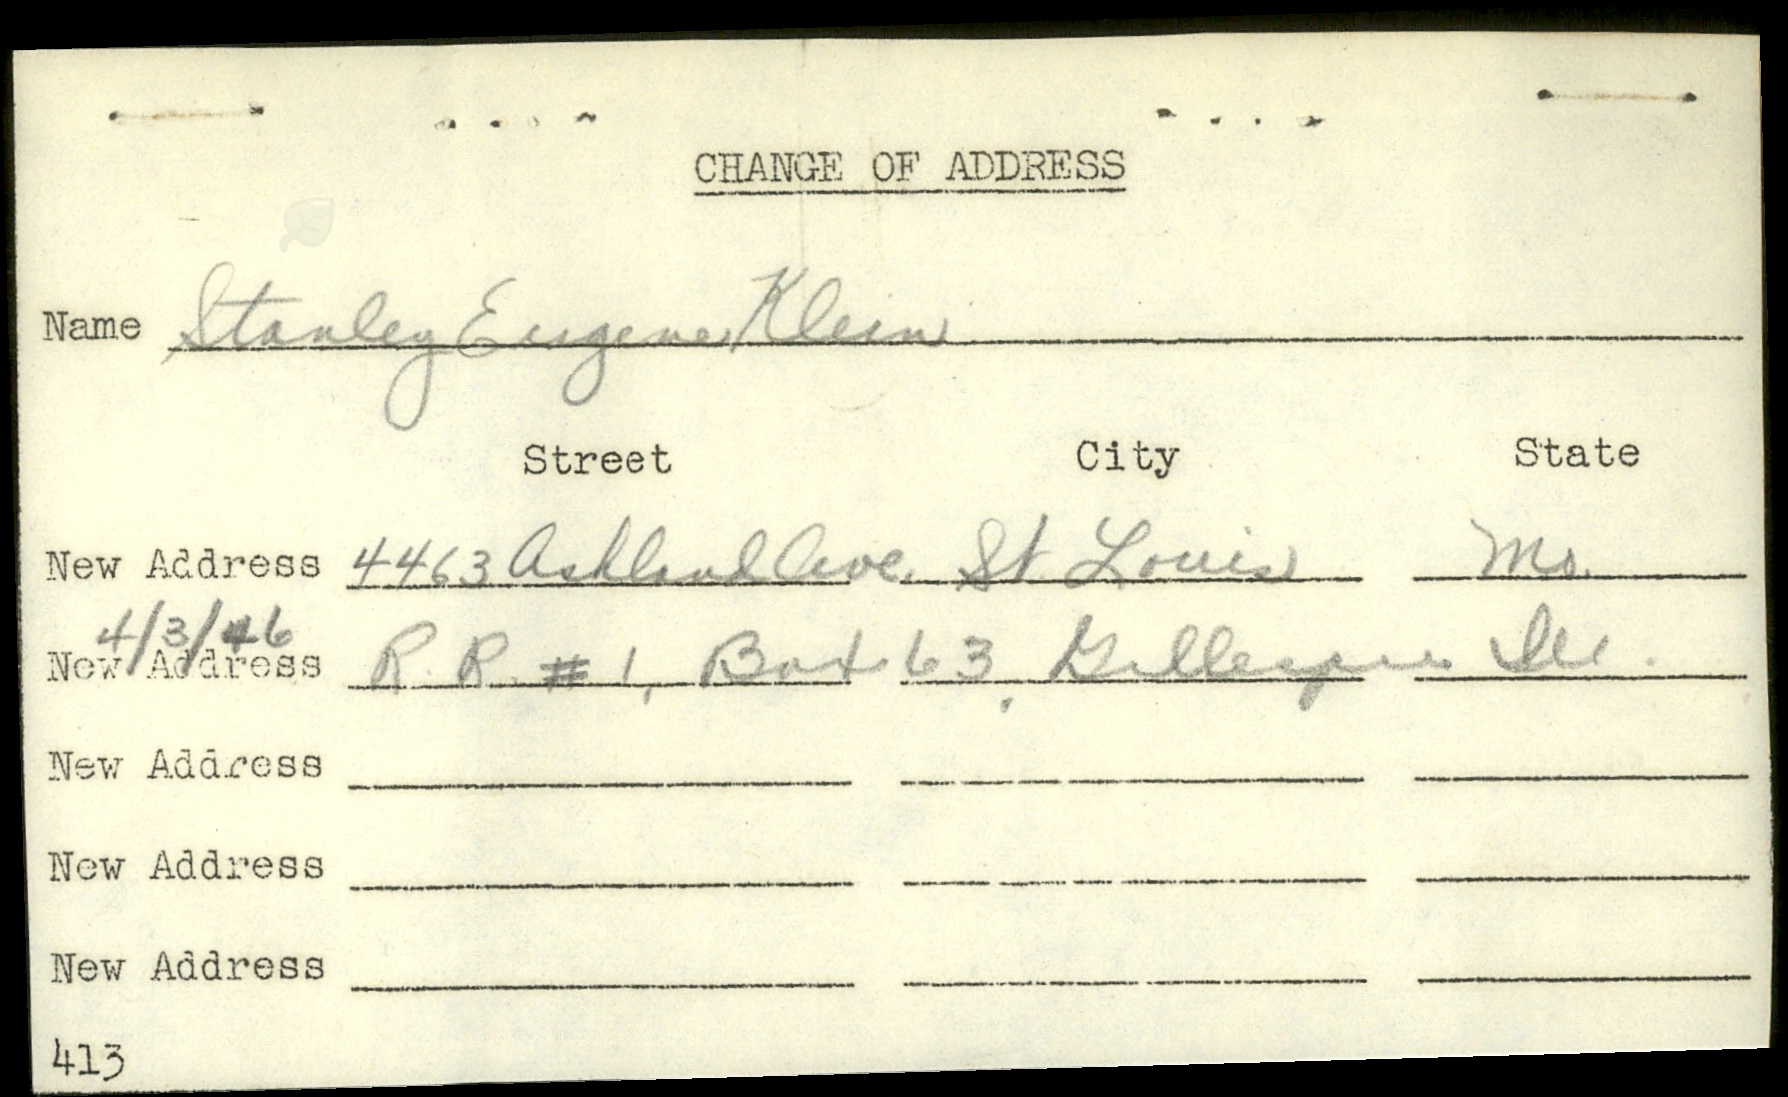 CHANGE OF ADDRESS
Name Stanley Eugene Klein
Street City State
New Address 4463 Ashland Ave. St Louis Mo.
4/3/46
New Address R. R. # 1, Box 63, Gillespie Ill.
New Address
New Address
New Address
413